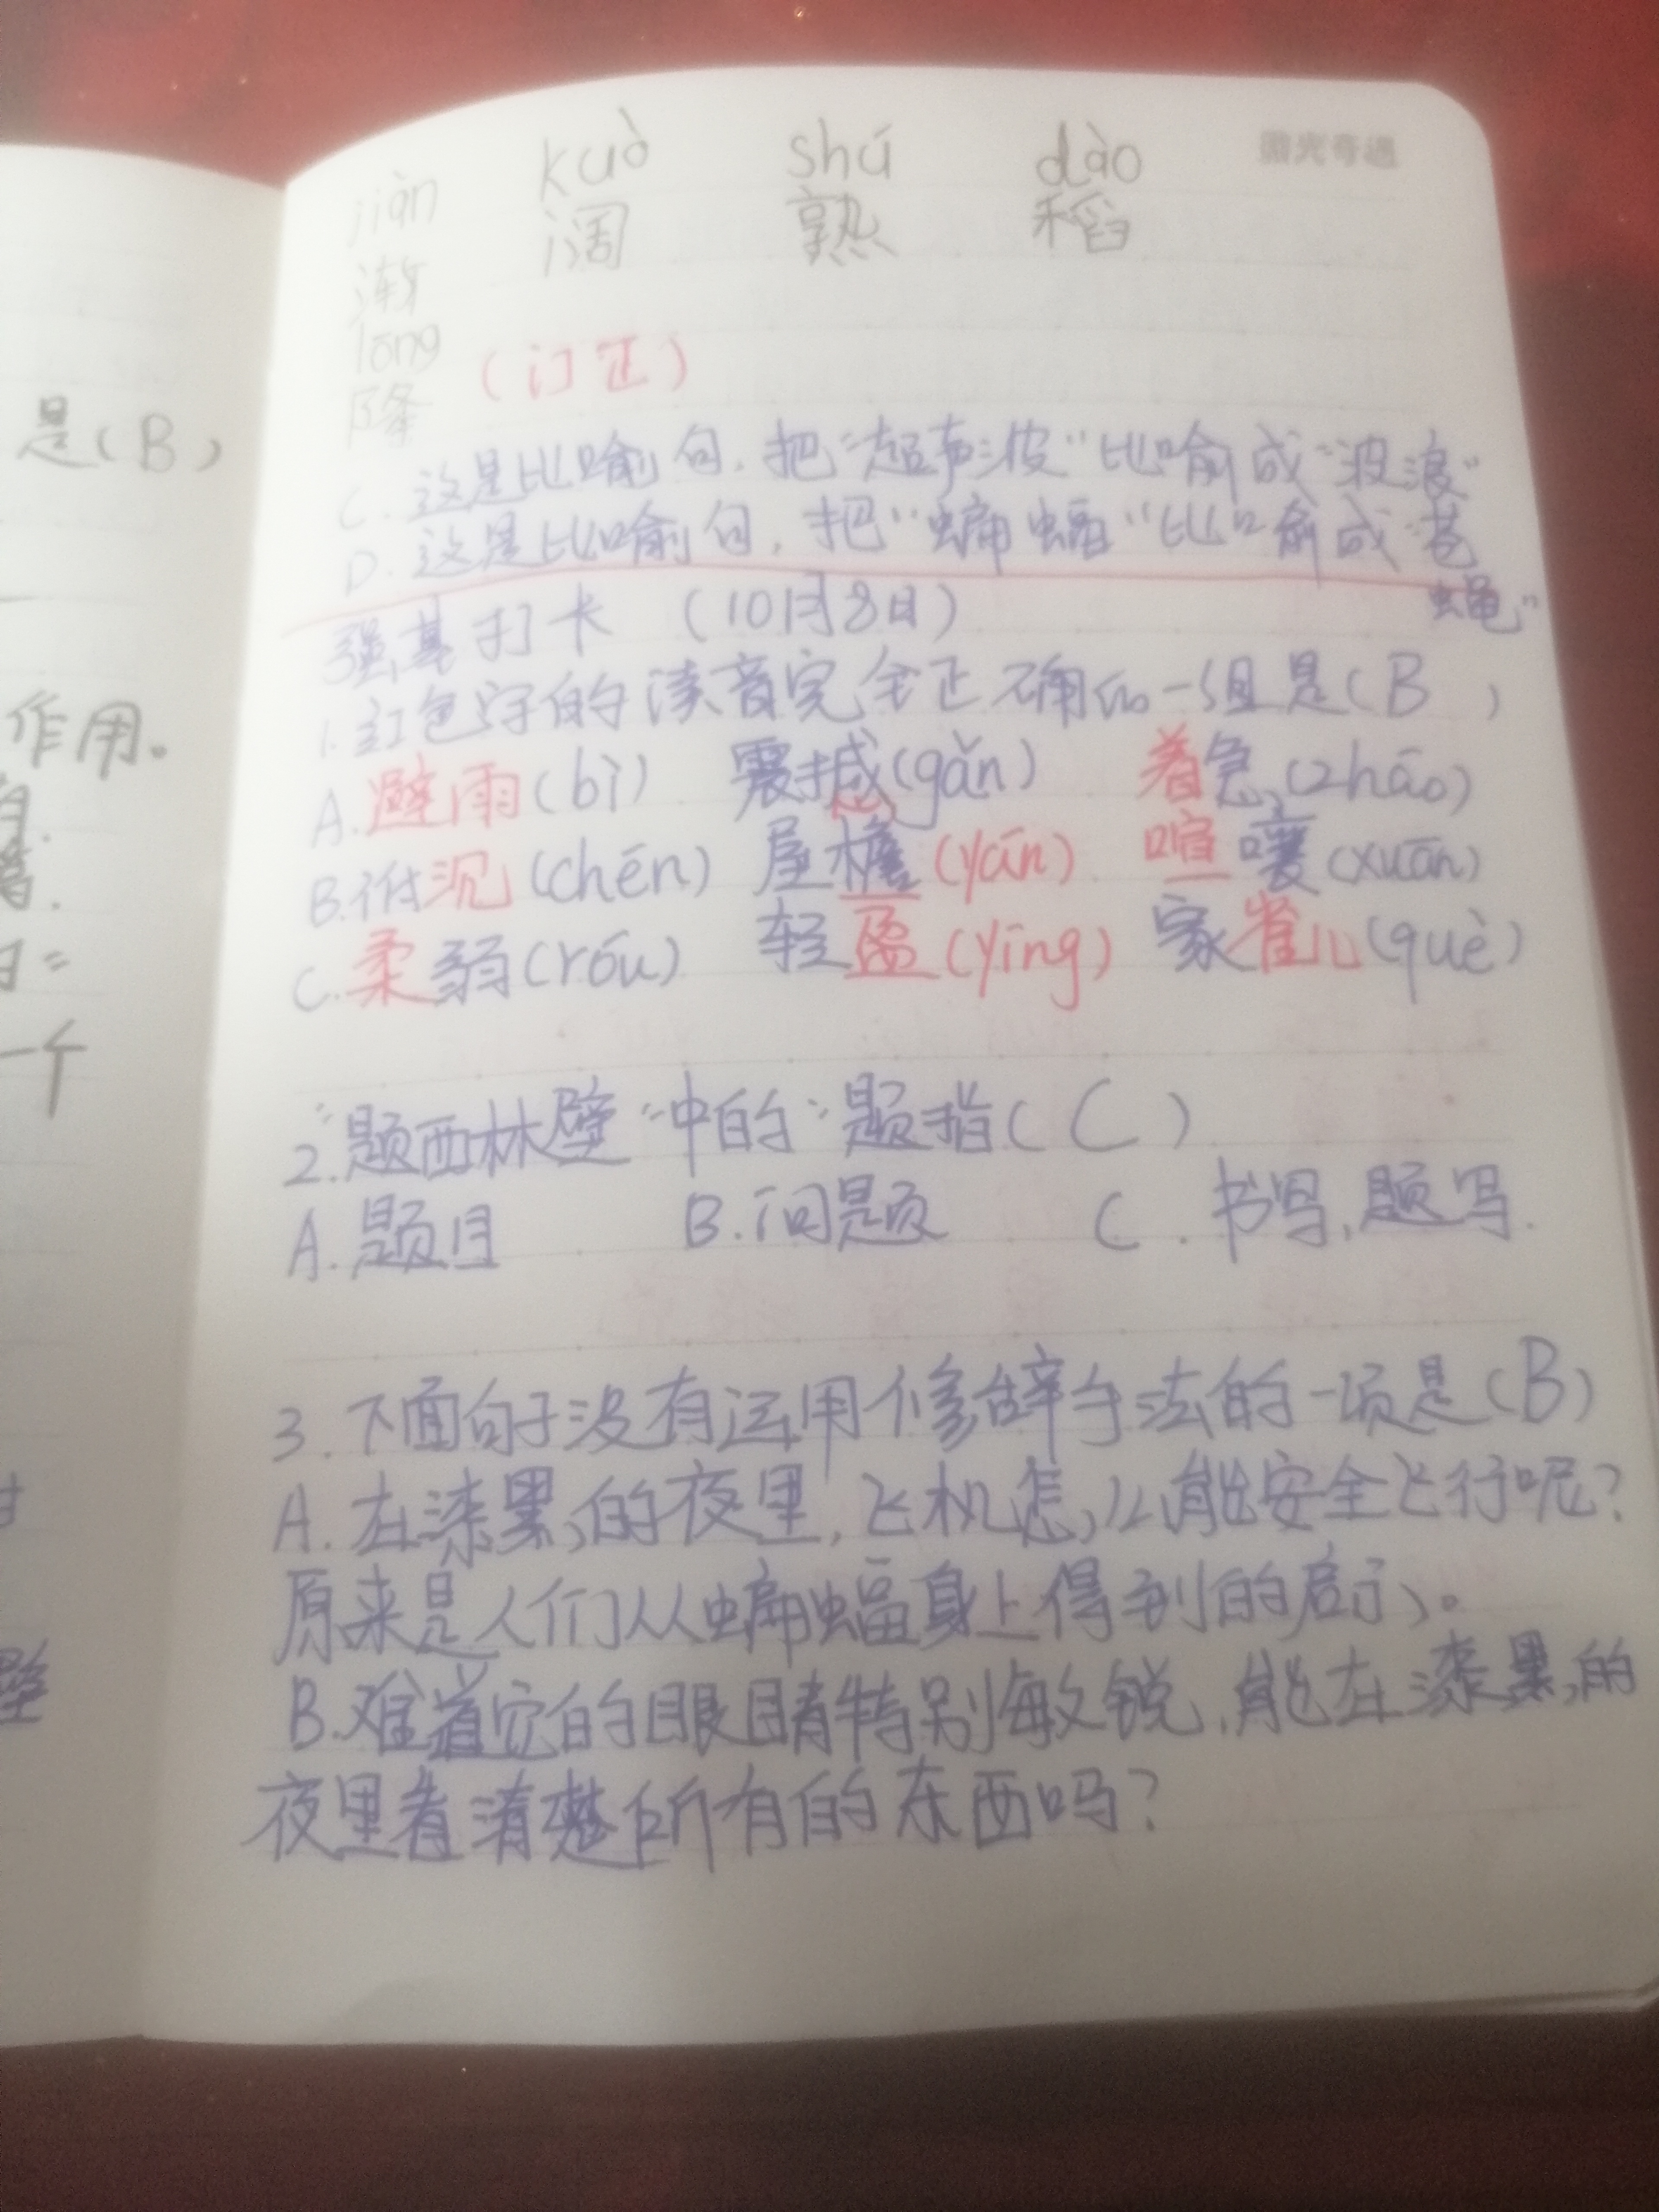 是(B)
作用。
一个
微光奇遇
jiàn kuò shú dào
渐 阔 熟 稻
lōng
降 (订正)
C. 这是比喻句,把"超声波"比喻成"波浪"
D. 这是比喻句,把"蝙蝠"比喻成"苍
蝇"
强基打卡 (10月8日)
1.红色字的读音完全正确的一组是(B )
A.避雨(bì) 震撼(gǎn) 着急(zhāo)
B.低沉(chēn) 屋檐(yān) 喧嚷(xuān)
C.柔弱(róu) 轻盈(yīng) 家雀儿(què)
2."题西林壁"中的"题指(C)
A.题目 B.问题 C.书写,题写.
3.下面句子没有运用修辞手法的一项是(B)
A.在漆黑的夜里,飞机怎么能安全飞行呢?
原来是人们从蝙蝠身上得到的启示。
B.难道它的眼睛特别敏锐,能在漆黑的
夜里看清楚所有的东西吗?